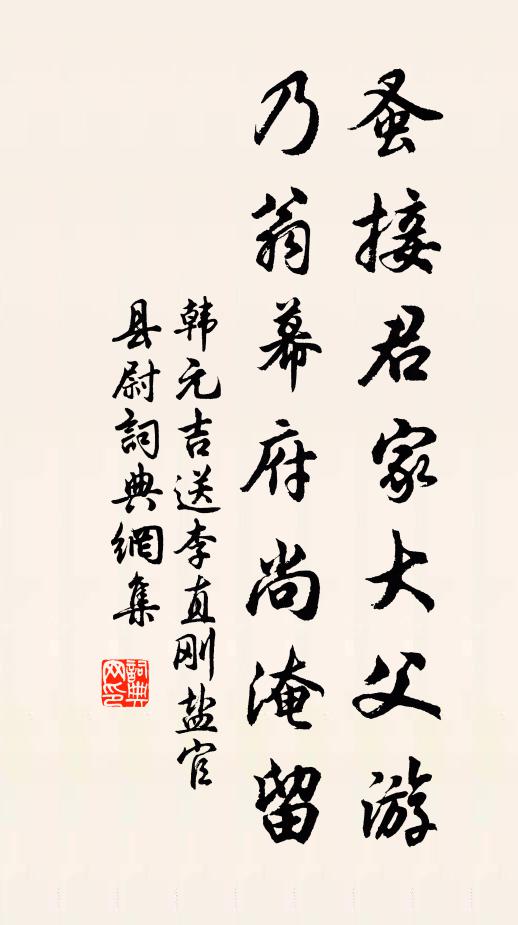 蚤接君家大父游
乃翁幕府尚淹留
韩元吉送李直刚盐官
县尉詞典網集
詞典网印